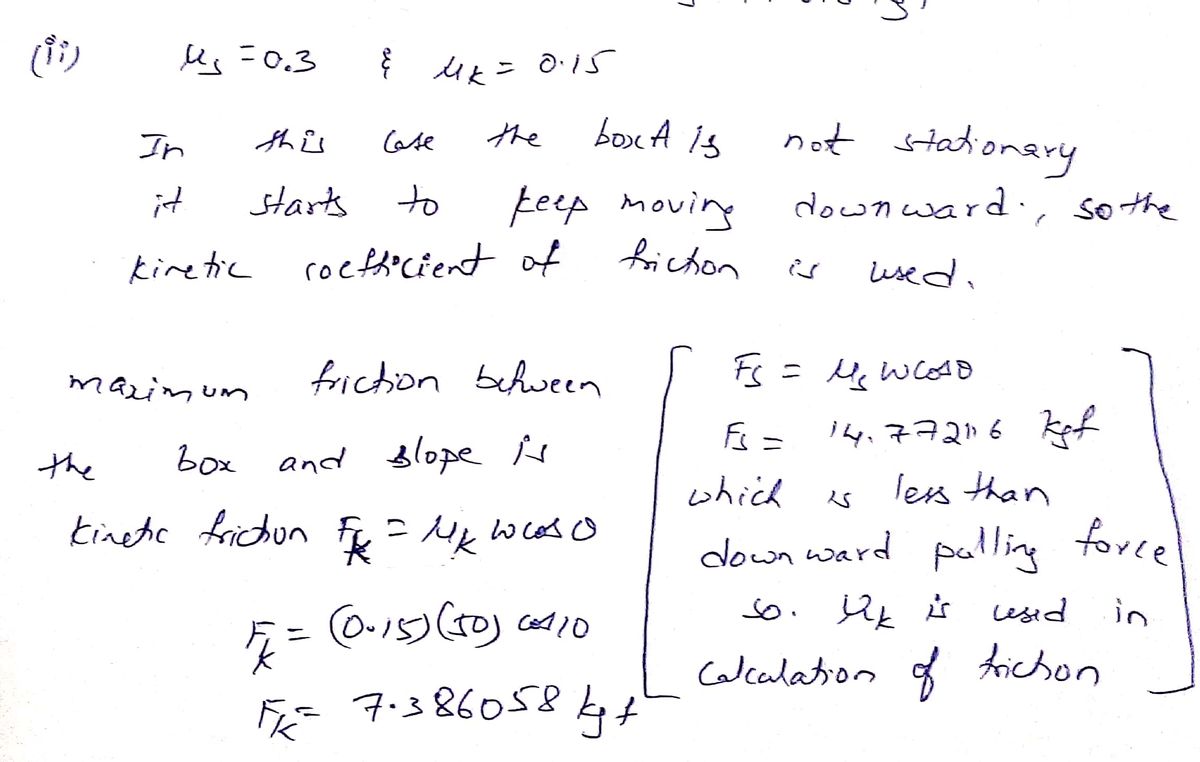 (ii) μs = 0.3 & μk = 0.15
In this case the box A is not stationary
it starts to keep moving downward., so the
kinetic coefficient of friction is used.
maximum friction between
the box and slope is
kinetic friction Fk = μk w cosθ
Fk = (0.15)(50) cos10
Fk = 7.386058 kgf
Fs = μs w cosθ
Fs = 14.772116 kgf
which is less than
downward pulling force
so. μk is used in
calculation of friction